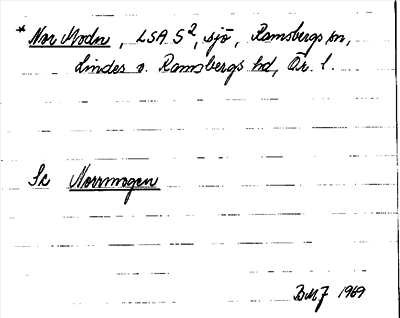 *Nor Modn, LSA S², sjö, Ramsbergs sn,
Lindes o. Ramsbergs hd, Ör. l.
Se Norrmogen
BMJ 1969